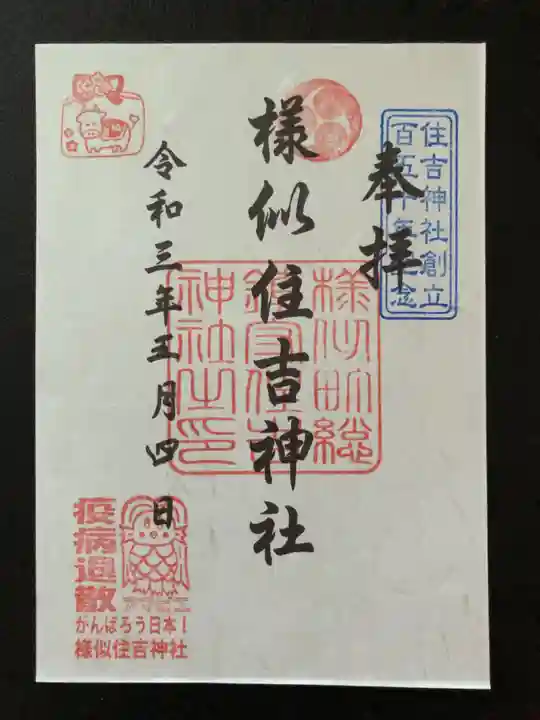 住吉神社創立
百五十年記念
奉拝
様似住吉神社
様似町総
鎮守住吉
神社之印
令和三年三月四日
疫病退散
アマビエ
がんばろう日本！
様似住吉神社